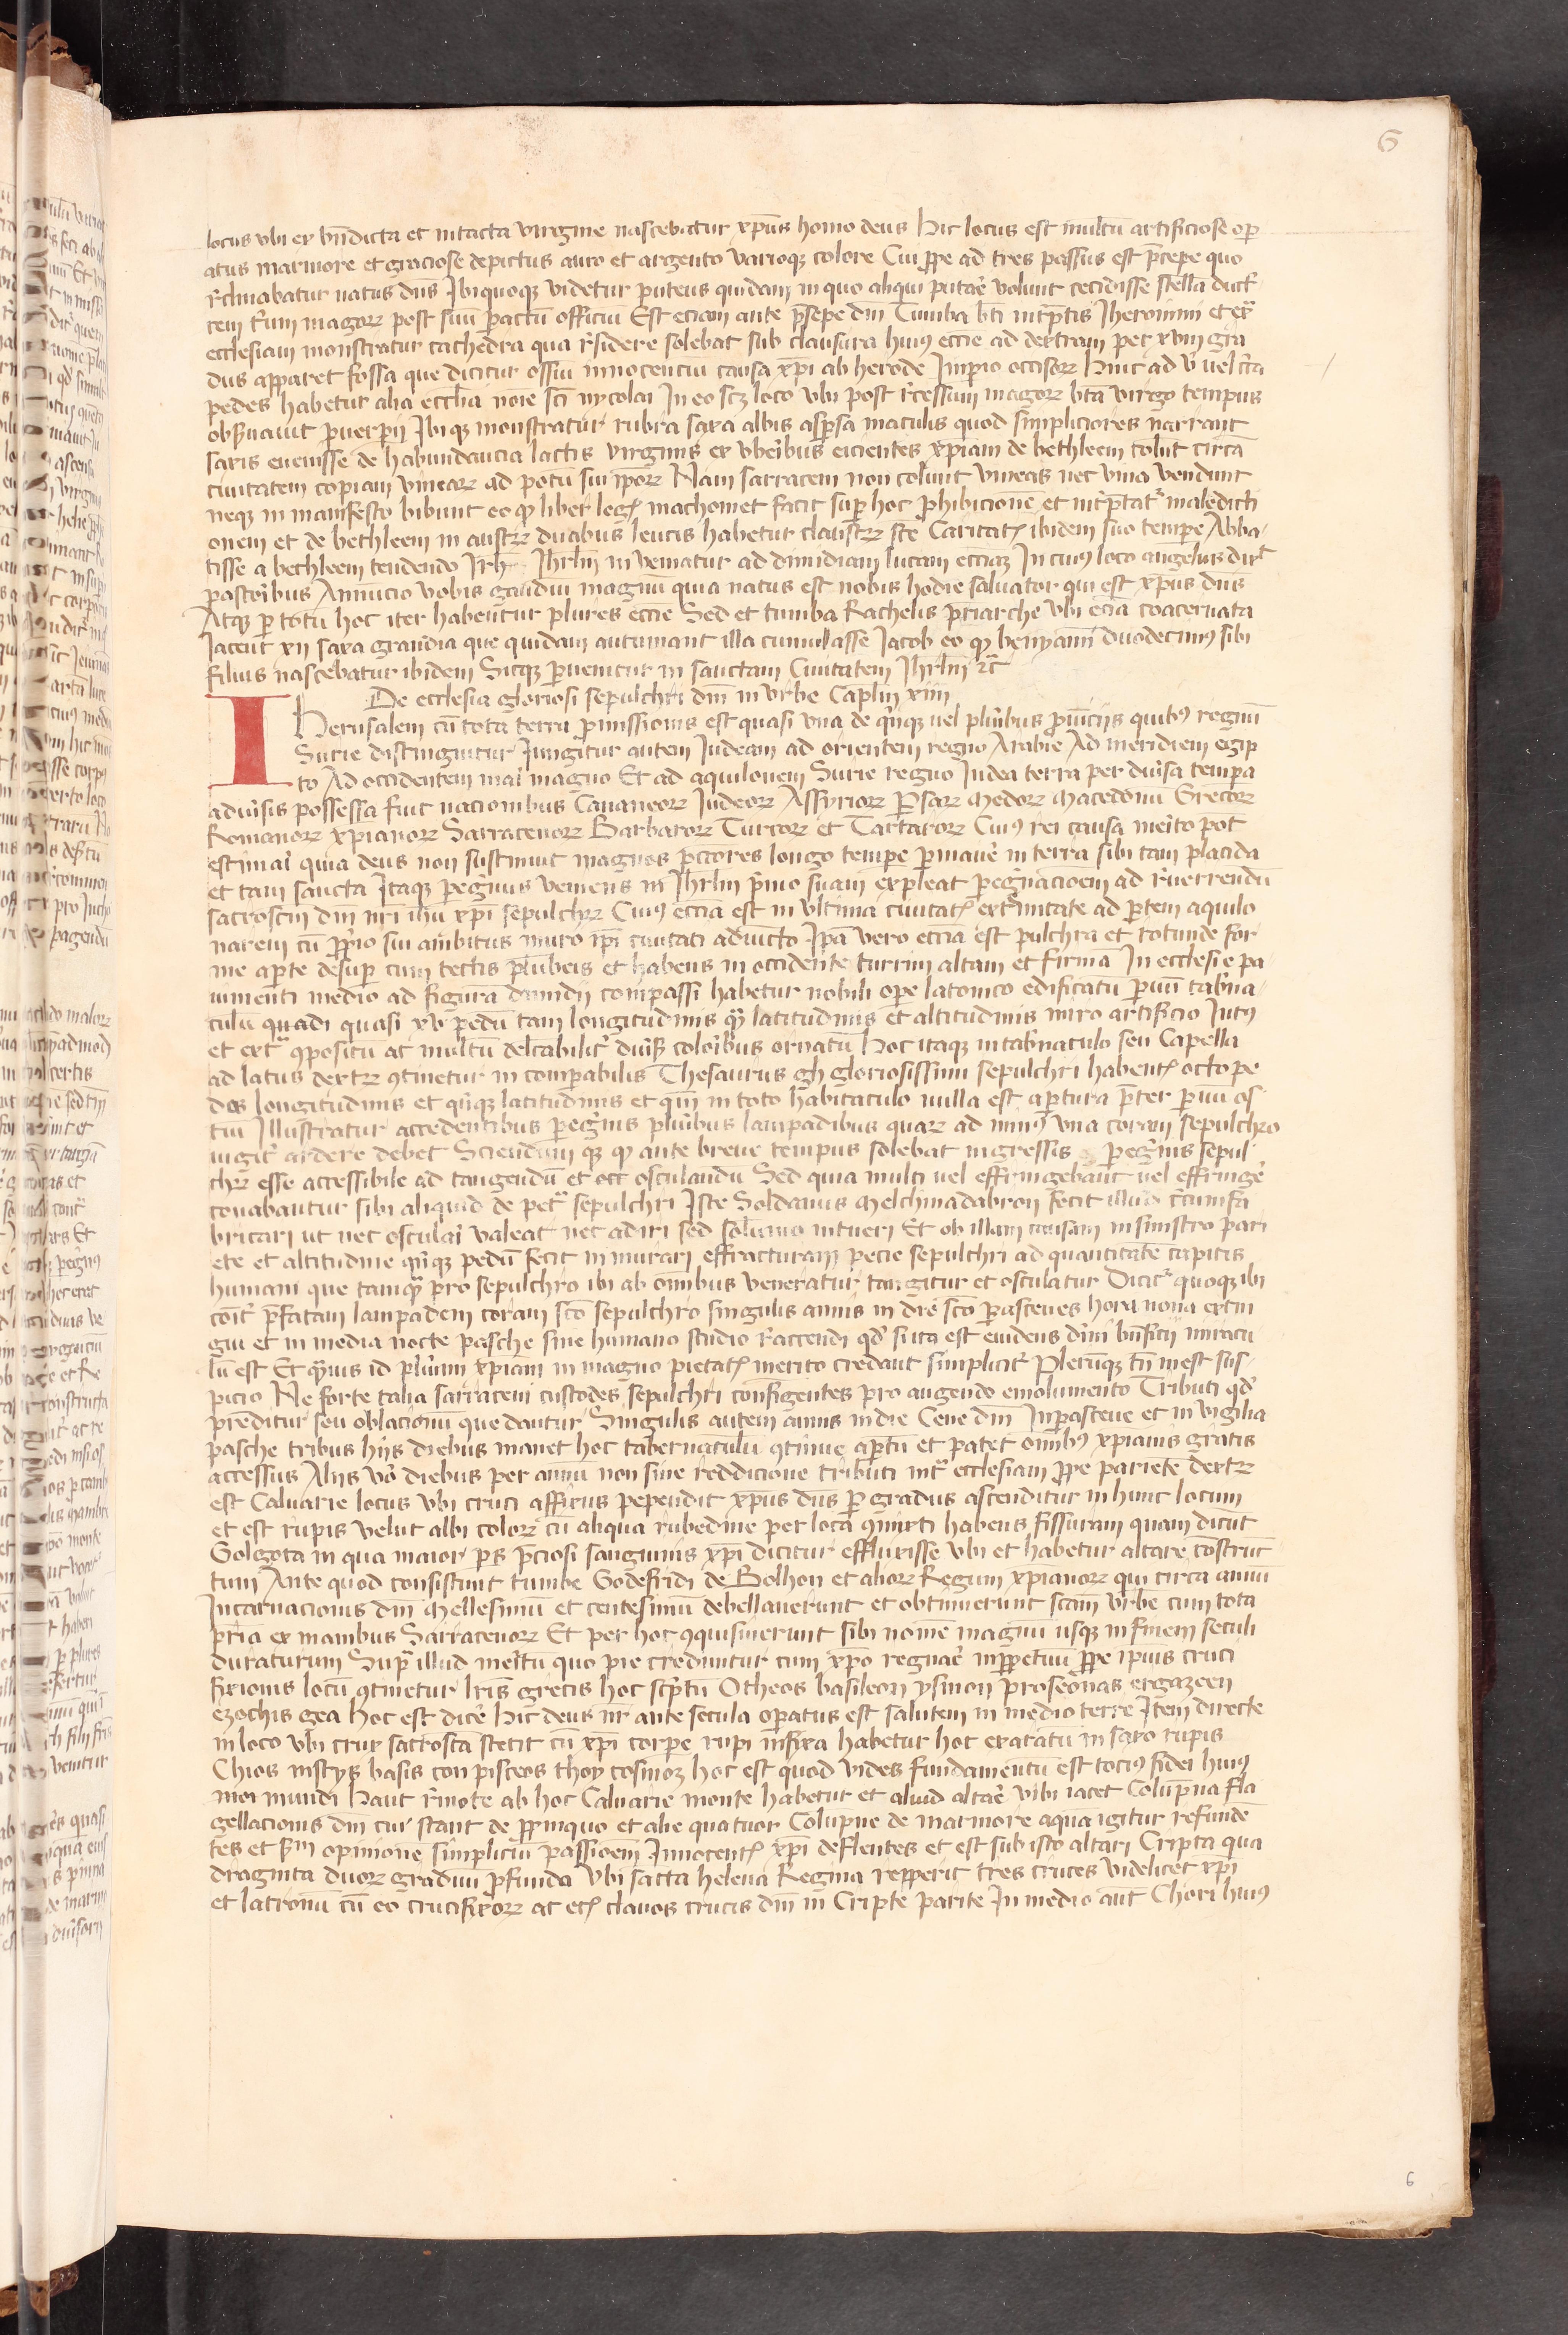 6
locus vbi ex bn̄dicta et intacta virgine nascebatur xp̄us homo deus Hic locus est multū artificiose oꝑ
atus marmore et graciose depictus auro et argento varioqꝫ colore Cui ꝓpe ad tres passus est p̄cepe quo
reclinabatur natus dn̄s Ibiquoqꝫ videtur puteus quidam in quo aliqui putare volunt cecidisse stellā duct
cem triū magoꝝ post suū ꝑactū officiū Est eciam ante p̄sepe dn̄i Tumba bt̄i int̄p̄tis Iheronimi et ext̄
ecclesiam monstratur cathedra qua residere solebat sub clausura huiꝰ eccīe ad dextram per xviii gra
dus apparet fossa que dicitur ossiū innocenciū causa xp̄i ab herode Imꝑio occisoꝝ Hinc ad v vel circa
pedes habetur alia ecclīa noīe sc̄i nycolai In eo scꝫ loco vbi post recessum magoꝝ bt̄a virgo tempus
obseruauit puerperij Ibiqꝫ monstratur rubra saxa albis asꝑsa maculis quod simpliciores narrant
saxis euenisse de habundancia lactis virginis ex vberibus eicientes xp̄iani de bethleem colūt circa
ciuitatem copiam vinearꝝ ad potū sui ip̄oꝝ Nam sarraceni non colunt vineas nec vina vendunt
neqꝫ in manifesto bibunt eo qꝫ liber legꝭ machomet facit suꝑ hoc ꝓhibicionē et int̄p̄tatʳ maledicti
onem et de bethleem in austꝝ duabus leucis habetur claustꝝ sc̄e Caritatꝭ ibidem suo tempe Abba
tisse a bethleem tendendo Irh Ihrl̄m inveniatur ad dimidiam lucam eccīaꝫ In cuiꝰ loco angelus dixit
pastoribus Annūcio vobis gaudiū magnū quia natus est nobis hodie saluator qui est xp̄us dn̄s
Atqꝫ ꝑ totū hoc iter habentur plures eccīe Sed et tumba Rachelis p̄triarche vbi eciā coaceruata
Iacent xii saxa grandia que quidam autumant illa cumulasse Iacob eo qꝫ benyamī duodecimꝰ sibi
filius nascebatur ibidem Sicqꝫ ꝑuenitur in sanctam Ciuitatem Ihrl̄m ⁊c̄
De ecclesia gloriosi sepulchri dn̄i in vrbe Caplm̄ xiiii
IHerusalem cū tota terra ꝓmissionis est quasi vna de qn̄qꝫ uel pluribus ꝓuīciis quibꝰ regnū
Surie distinguitur Iungitur autem Iudeam ad orientem regno Arabie Ad meridiem egip
to Ad occidentem mari magno Et ad aquilonem Surie regno Iudea terra per diuisa tempa
adiuisis possessa fuit nacionibus Cananeoꝝ Iudeoꝝ Assyrioꝝ Psaꝝ Medoꝝ Macedonū Grecoꝝ
Romanoꝝ xp̄ianoꝝ Sarracenoꝝ Barbaroꝝ Turcoꝝ et Tartaroꝝ Cuiꝰ rei causa merito pot
estimari quia deus non sustinuit magnos p̄cc̄ores longo tempe ꝑmanere in terra sibi tam placida
et tam sancta Itaqꝫ ꝑegrinus veniens in Ihrl̄m primo suam expleat ꝑegrinacioem ad reuerendū
sacrosc̄m dn̄i nr̄i ihū xp̄i sepulchꝝ Cuiꝰ eccīa est in vltima ciuitatꝭ extremitate ad ꝑtem aquilo
narem cū ꝓprio sui ambitus muro ip̄i ciuitati adiuncto Ip̄a vero eccīa est pulchra et rotunde for
me aꝑte desuꝑ cum tectis plūbeis et habens in occidente turrim altam et firmā In ecclesie pa
uimenti medio ad figurā dimidij compassi habetur nobili oꝑe latomico edificatū ꝑuū tab̄na
culū quadi quasi xv pedū tam longitudinis qꝫ latitudinis et altitudinis miro artificio Intꝰ
et ext̄ ꝯpositū ac multū delcabilitʳ diūsꝭ coloribus ornatū Hoc itaqꝫ in tab̄naculo seu Capella
ad latus dextꝝ ꝯtinetur incomꝑabilis Thesaurus gh gloriosissimi sepulchri habentꝭ octo pe
des longitudinis et qn̄qꝫ latitudinis et qm̄ in toto habitaculo nulla est aꝑtura p̄ter ꝑuū os
tiū Illustratur accedentibus ꝑegrinis pluribus lampadibus quaꝝ ad minꝰ vna coram sepulchro
iugitʳ ardere debet Sciendum qꝫ qꝫ ante breue tempus solebat ingressis ꝑegrinis sepul
chꝝ esse accessibile ad tangendū et occ osculandū Sed quia multi uel effringebant uel effringe
conabantur sibi aliquid de petra sepulchri Iste Soldanus Melchinadabron fecit illud circumfa
bricari ut nec osculari valeat nec adiri sed solūmo intueri Et ob illam causam in sinistro pari
ete et altitudine qn̄qꝫ pedū fecit in murari effracturam pecie sepulchri ad quantitatē capitis
humani que tamqꝫ pro sepulchro ibi ab omībus veneratur tangitur et osculatur Dicitʳ quoqꝫ ibi
cōitʳ p̄fatam lampadem coram sc̄o sepulchro singulis annis in die sc̄o parasceues hora nona extin
gui et in media nocte pasche sine humano studio reaccendi qd̄ si ita est euidens diuini bn̄ficij miracu
lū est Et qꝫuis id plurimi xp̄iani in magno pietatꝭ merito credant simplicitʳ Plerūqꝫ tn̄ inest sus
picio Ne forte talia sarraceni custodes sepulchri confingentes pro augendo emolumento Tributi qd̄
p̄reditur seu oblacionū que dantur Singulis autem annis in die Cene dn̄i In parasceue et in vigilia
pasche tribus hijs diebus manet hoc tabernaculū ꝯtinue aꝑtū et patet om̄ibꝰ xp̄ianis gratis
accessus Alijs vō diebus per annū non sine reddicione tributi int̄ ecclesiam ꝓpe parietē dextꝝ
est Caluarie locus vbi cruci affixus pependit xp̄us dn̄s ꝑ gradus ascenditur in hunc locum
et est rupis velut albi coloꝝ cū aliqua rubedine per loca ꝯmixti habens fissuram quam dicūt
Golgota in qua maior ps p̄ciosi sanguinis xp̄i dicitur effluxisse vbi et habetur altare cōstruc
tum Ante quod consistunt tumbe Godefridi de Bolhon et alioꝝ Regum xp̄ianoꝝ qui circa annū
Incarnacionis dn̄i Mellesimū et centesimū debellauerunt et obtinuerunt sc̄am vrbē cum tota
p̄riā ex manibus Sarracenoꝝ Et per hoc ꝯquisiuerunt sibi nomē magnū usqꝫ in finem seculi
duraturum Supra illud meritū quo pie creduntur cum xp̄o regnare inꝑpetuū ꝓpe ip̄uis cruci
fixionis locū ꝯtinetur lris grecis hoc sc̄ptū Otheos basileon ysmon proseonas ergazeen
ezochis gea hoc est dicere Hic deus nr̄ ante secula oꝑatus est salutem in medio terre Item directe
in loco vbi crux sacrosca stetit cū xp̄i corpe rupi infixa habetur hoc exaratū in saxo rupis
Chios instys basis con pisteos thoy cosmoꝫ hoc est quod vides fundamentū est tociꝰ fidei huiꝰ
moi mundi Haut remote ab hoc Caluarie monte habetur et aliud altare vibi iacet Colūpna fla
gellacionis dn̄i cui stant de ꝓpinquo et alie quatuor Colūpne de marmore aquā igitur refundē
tes et sm opinionē simpliciū passionem Innocentꝭ xp̄i deflentes et est sub isto altari Cripta qua
draginta duoꝝ graduū ꝓfunda vbi sancta helena Regina repperit tres cruces videlicet xp̄i
et latronū cū eo crucifixoꝝ ac etꝭ clauos crucis dn̄i in Cripte pariete In medio aut̄ Chori huiꝰ
6